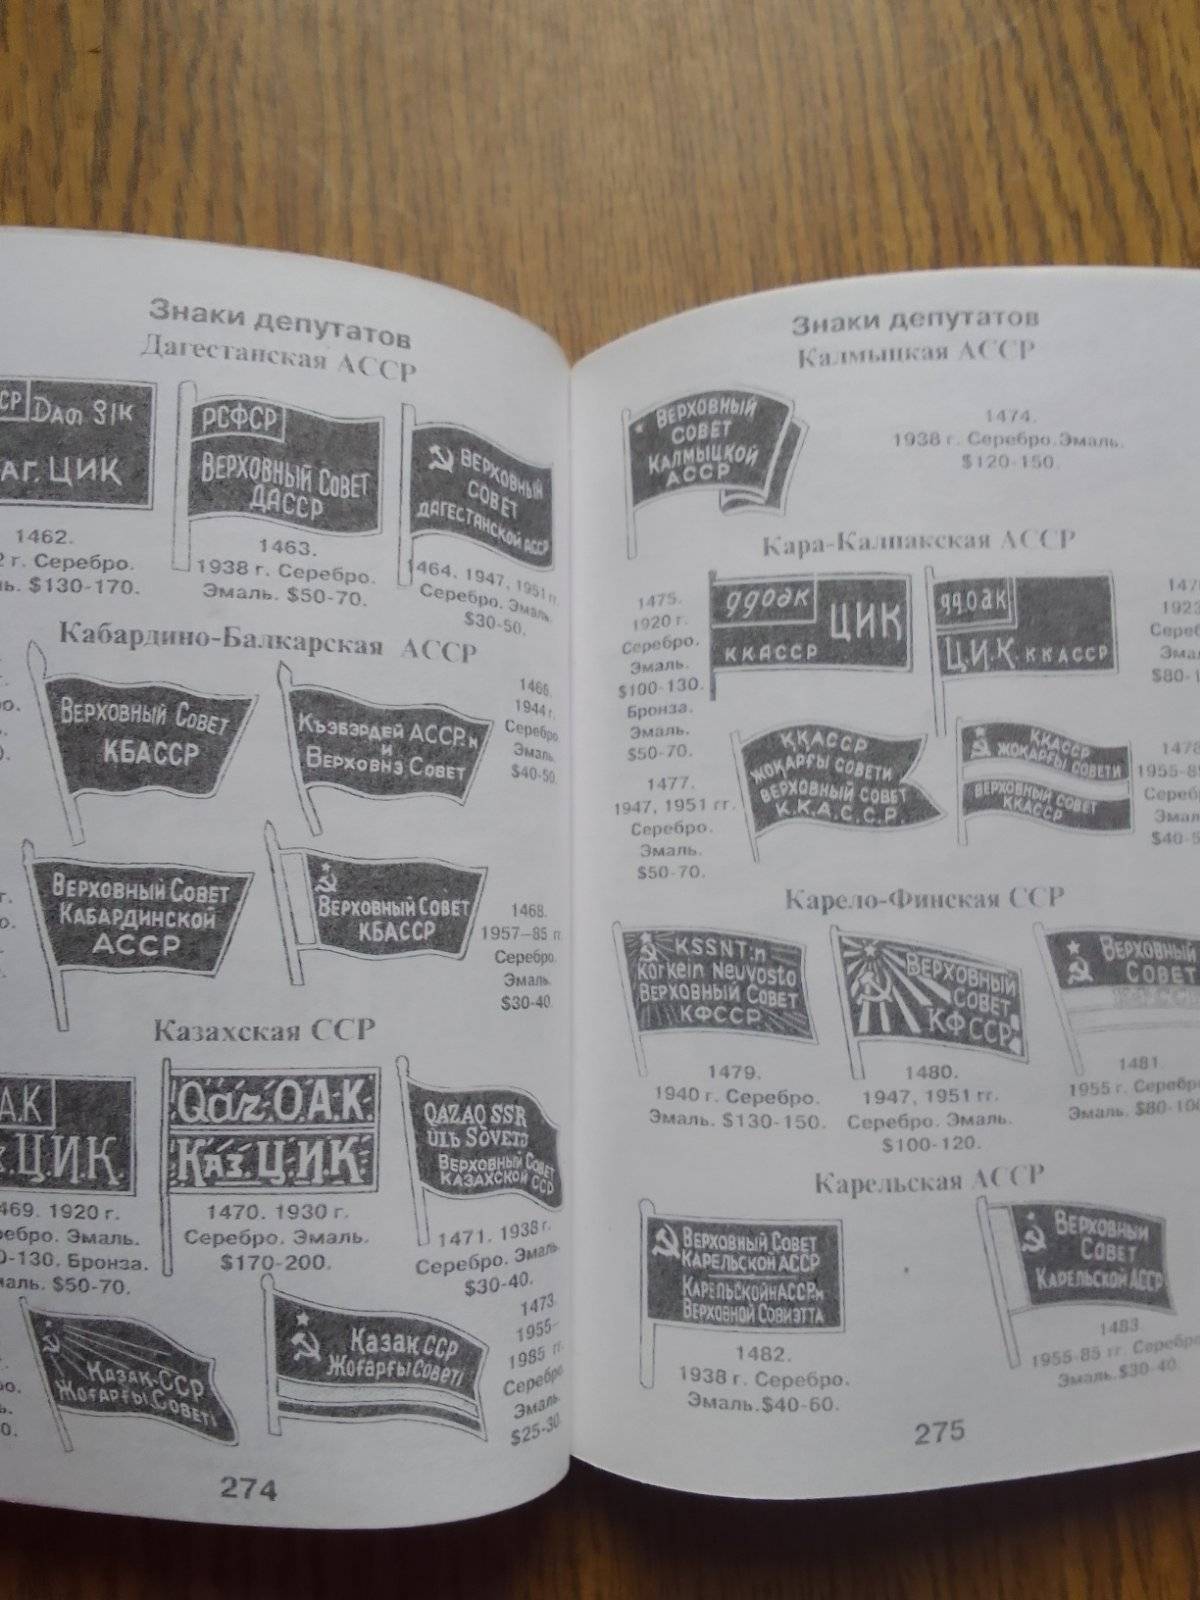 Знаки депутатов
Дагестанская АССР
СР Daƣ SIK
АГ. ЦИК
РСФСР
ВЕРХОВНЫЙ СОВЕТ
ДАССР
ВЕРХОВНЫЙ
СОВЕТ
ДАГЕСТАНСКОЙ АССР
1462.
2 г. Серебро.
ль. $130-170.
1463.
1938 г. Серебро.
Эмаль. $50-70.
1464. 1947, 1951 гг.
Серебро. Эмаль.
$30-50.
Кабардино-Балкарская АССР
ВЕРХОВНЫЙ СОВЕТ
КБАССР
КЪЭБЭРДЕЙ АССР.М
И
ВЕРХОВНЭ СОВЕТ
1466.
1944 г.
Серебро.
Эмаль.
$40-50.
ВЕРХОВНЫЙ СОВЕТ
КАБАРДИНСКОЙ
АССР
ВЕРХОВНЫЙ СОВЕТ
КБАССР
1468.
1957–85 гг.
Серебро.
Эмаль.
$30-40.
Казахская ССР
.А.К
.Ц.И.К.
Qaz.O.A.K.
Каз.Ц.И.К.
QAZAQ SSR
ULЬ SOVETЬ
ВЕРХОВНЫЙ СОВЕТ
КАЗАХСКОЙ ССР
469. 1920 г.
ребро. Эмаль.
0-130. Бронза.
маль. $50-70.
1470. 1930 г.
Серебро. Эмаль.
$170-200.
1471. 1938 г.
Серебро. Эмаль.
$30-40.
ҚАЗАК.ССР
ЖОҒАРҒЫ.СОВЕТІ
ҚАЗАК ССР
ЖОҒАРҒЫ СОВЕТІ
1473.
1955–
1985 гг.
Серебро.
Эмаль.
$25-30.
274
Знаки депутатов
Калмыцкая АССР
ВЕРХОВНЫЙ
СОВЕТ
КАЛМЫЦКОЙ
АССР
1474.
1938 г. Серебро.Эмаль.
$120-150.
Кара-Калпакская АССР
1475.
1920 г.
Серебро.
Эмаль.
$100-130.
Бронза.
Эмаль.
$50-70.
ЦИК
ККАССР
Ц.И.К. ККАССР
1476
1923
Сереб
Эма
$80-1
1477.
1947, 1951 гг.
Серебро.
Эмаль.
$50-70.
ҚҚАССР
ЖОҚАРҒЫ СОВЕТИ
ВЕРХОВНЫЙ СОВЕТ
К.К.А.С.С.Р.
ҚҚАССР
ЖОҚАРҒЫ СОВЕТИ
ВЕРХОВНЫЙ СОВЕТ
ККАССР
1478
1955-85
Сереб
Эма
$40-5
Карело-Финская ССР
KSSNT:n
Korkein Neuvosto
ВЕРХОВНЫЙ СОВЕТ
КФССР
ВЕРХОВНЫЙ
СОВЕТ
КФССР
ВЕРХОВНЫЙ
СОВЕТ
1479.
1940 г. Серебро.
Эмаль. $130-150.
1480.
1947, 1951 гг.
Серебро. Эмаль.
$100-120.
1481.
1955 г. Серебро
Эмаль. $80-100
Карельская АССР
ВЕРХОВНЫЙ СОВЕТ
КАРЕЛЬСКОЙ АССР
КАРЕЛЬСКОЙНАССР.Н
ВЕРХОВНОЙ СОВИЭТТА
ВЕРХОВНЫЙ
СОВЕТ
КАРЕЛЬСКОЙ АССР
1482.
1938 г. Серебро.
Эмаль.$40-60.
1483.
1955-85 гг. Серебро.
Эмаль.$30-40.
275